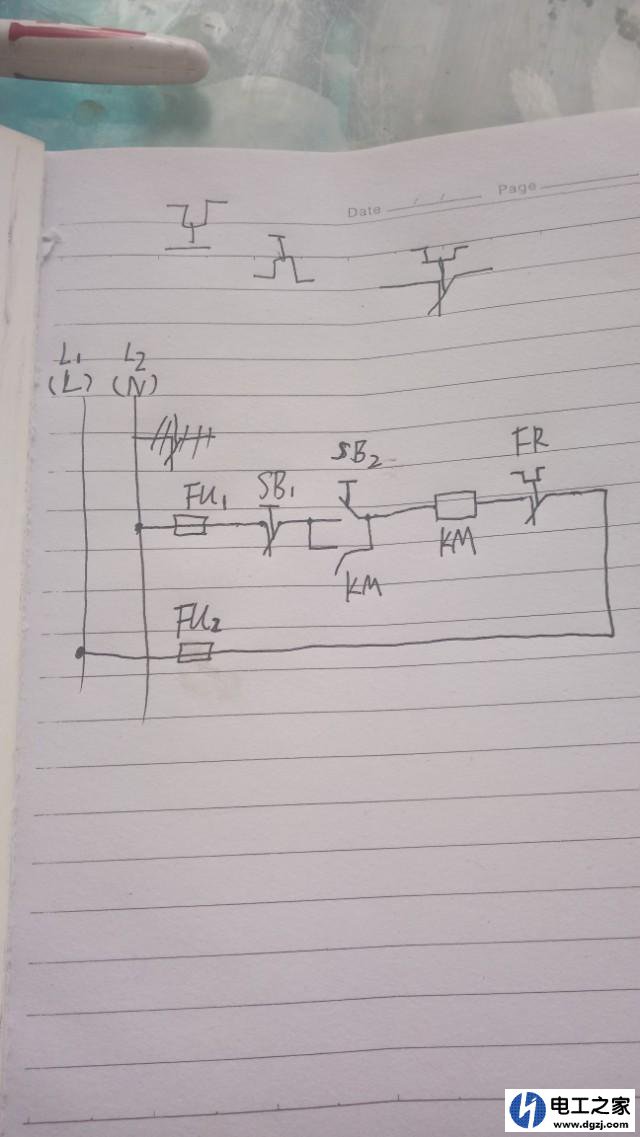 Date
Page
L₁ L₂
(L) (N)
SB₂ FR
FU₁ SB₁
KM
KM
FU₂
电工之家
www.dgzj.com